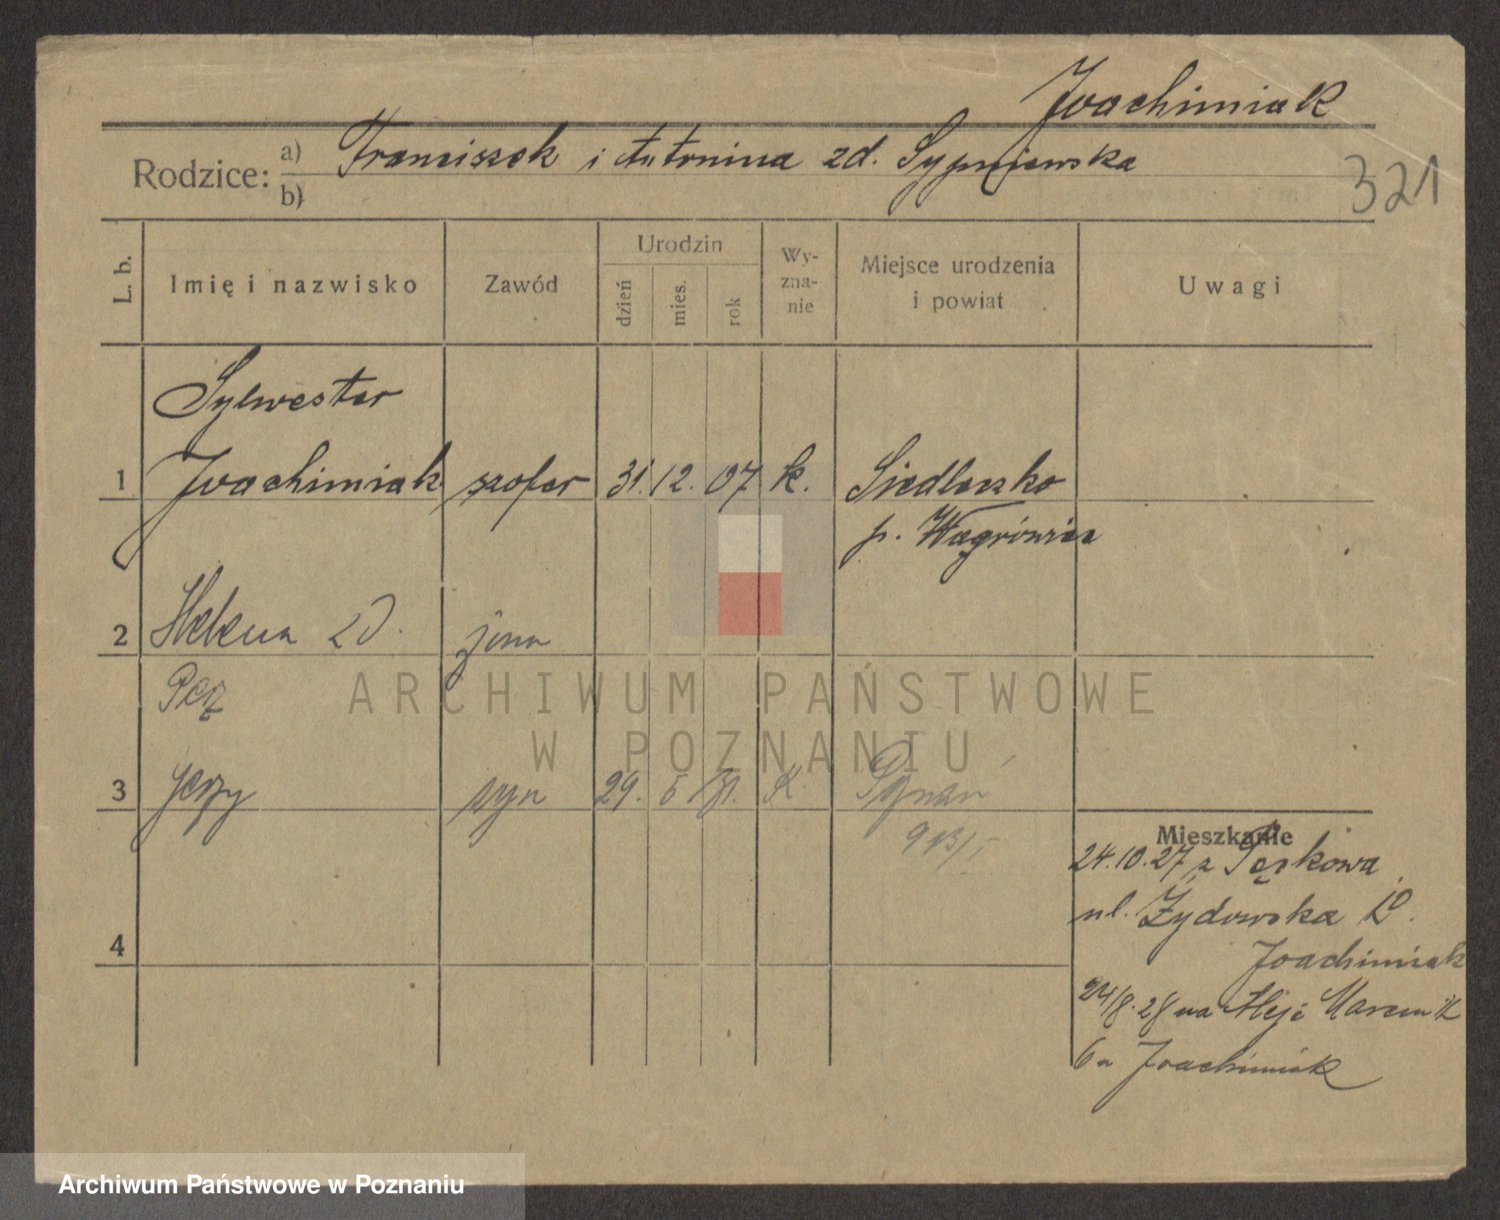 Joachimiak
Rodzice: a) Franciszek i Antonina zd. Sypniewska
b)
321
L. b.
Imię i nazwisko
Zawód
Urodzin
dzień
mies.
rok
Wy-
zna-
nie
Miejsce urodzenia
i powiat
Uwagi
Sylwester
1 Joachimiak szofer 31. 12. 07 k. Siedleczko
p. Wągrówiec
2 Helena zd. żona
Perz
3 Jerzy syn 29. 5 31. K. Poznań
913/I
4
Mieszkanie
24.10.27 z
ul. Żydowska 10.
Joachimiak
24/8.28 na Aleje Marcink
6a Joachimiak
ARCHIWUM PAŃSTWOWE
W POZNANIU
Archiwum Państwowe w Poznaniu